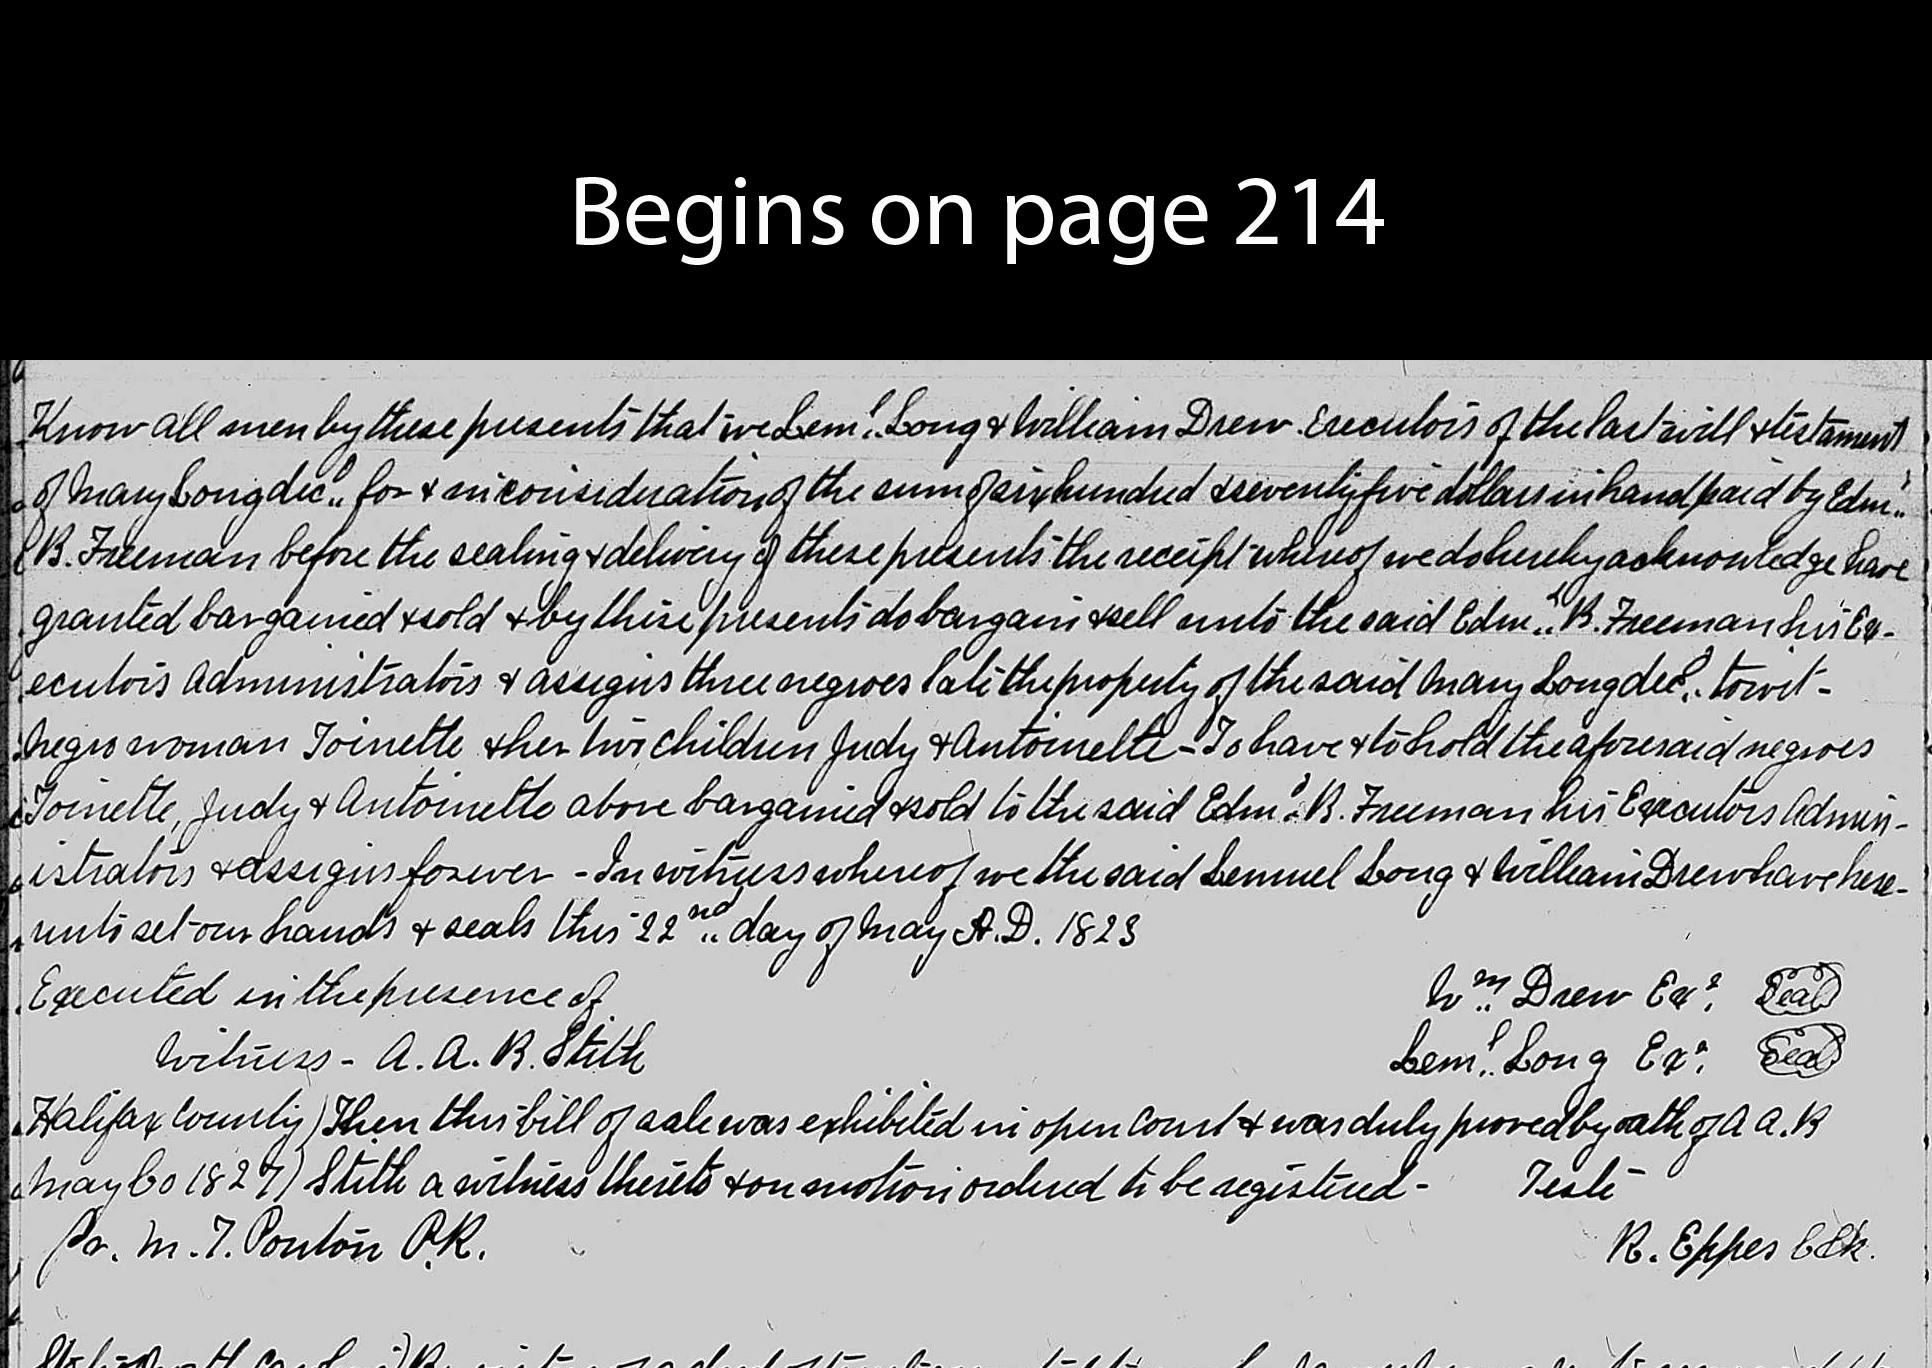 Begins on page 214
Know all men by these presents that we Lem.l Long & William Drew Executors of the last will & testament
of Mary Long dec.d for & in consideration of the sum of six hundred & seventy five dollars in hand paid by Edm.d
B. Freeman before the sealing & delivery of these presents the receipt whereof we do hereby acknowledge have
granted bargained & sold & by these presents do bargain & sell unto the said Edm.d B. Freeman his Ex-
ecutors Administrators & assigns three negroes late the property of the said Mary Long dec.d to wit -
Negro woman Toinette & her two children Judy & Antoinette - To have & to hold the aforesaid negroes
Toinette, Judy & Antoinette above bargained & sold to the said Edm.d B. Freeman his Executors Admin-
istrators & assigns forever - In witness whereof we the said Lemuel Long & William Drew have here-
unto set our hands & seals this 22nd day of May A.D. 1823
Executed in the presence of Wm Drew Exr. Seal
Witness - A. A. B. Stith Lem.l Long Exr. Seal
Halifax County) Then this bill of sale was exhibited in open Court & was duly proved by oath of A A. B
May Co 1827) Stith a witness thereto & on motion ordered to be registered - Teste
Pr. M. T. Ponton P.R. R. Eppes Clk.